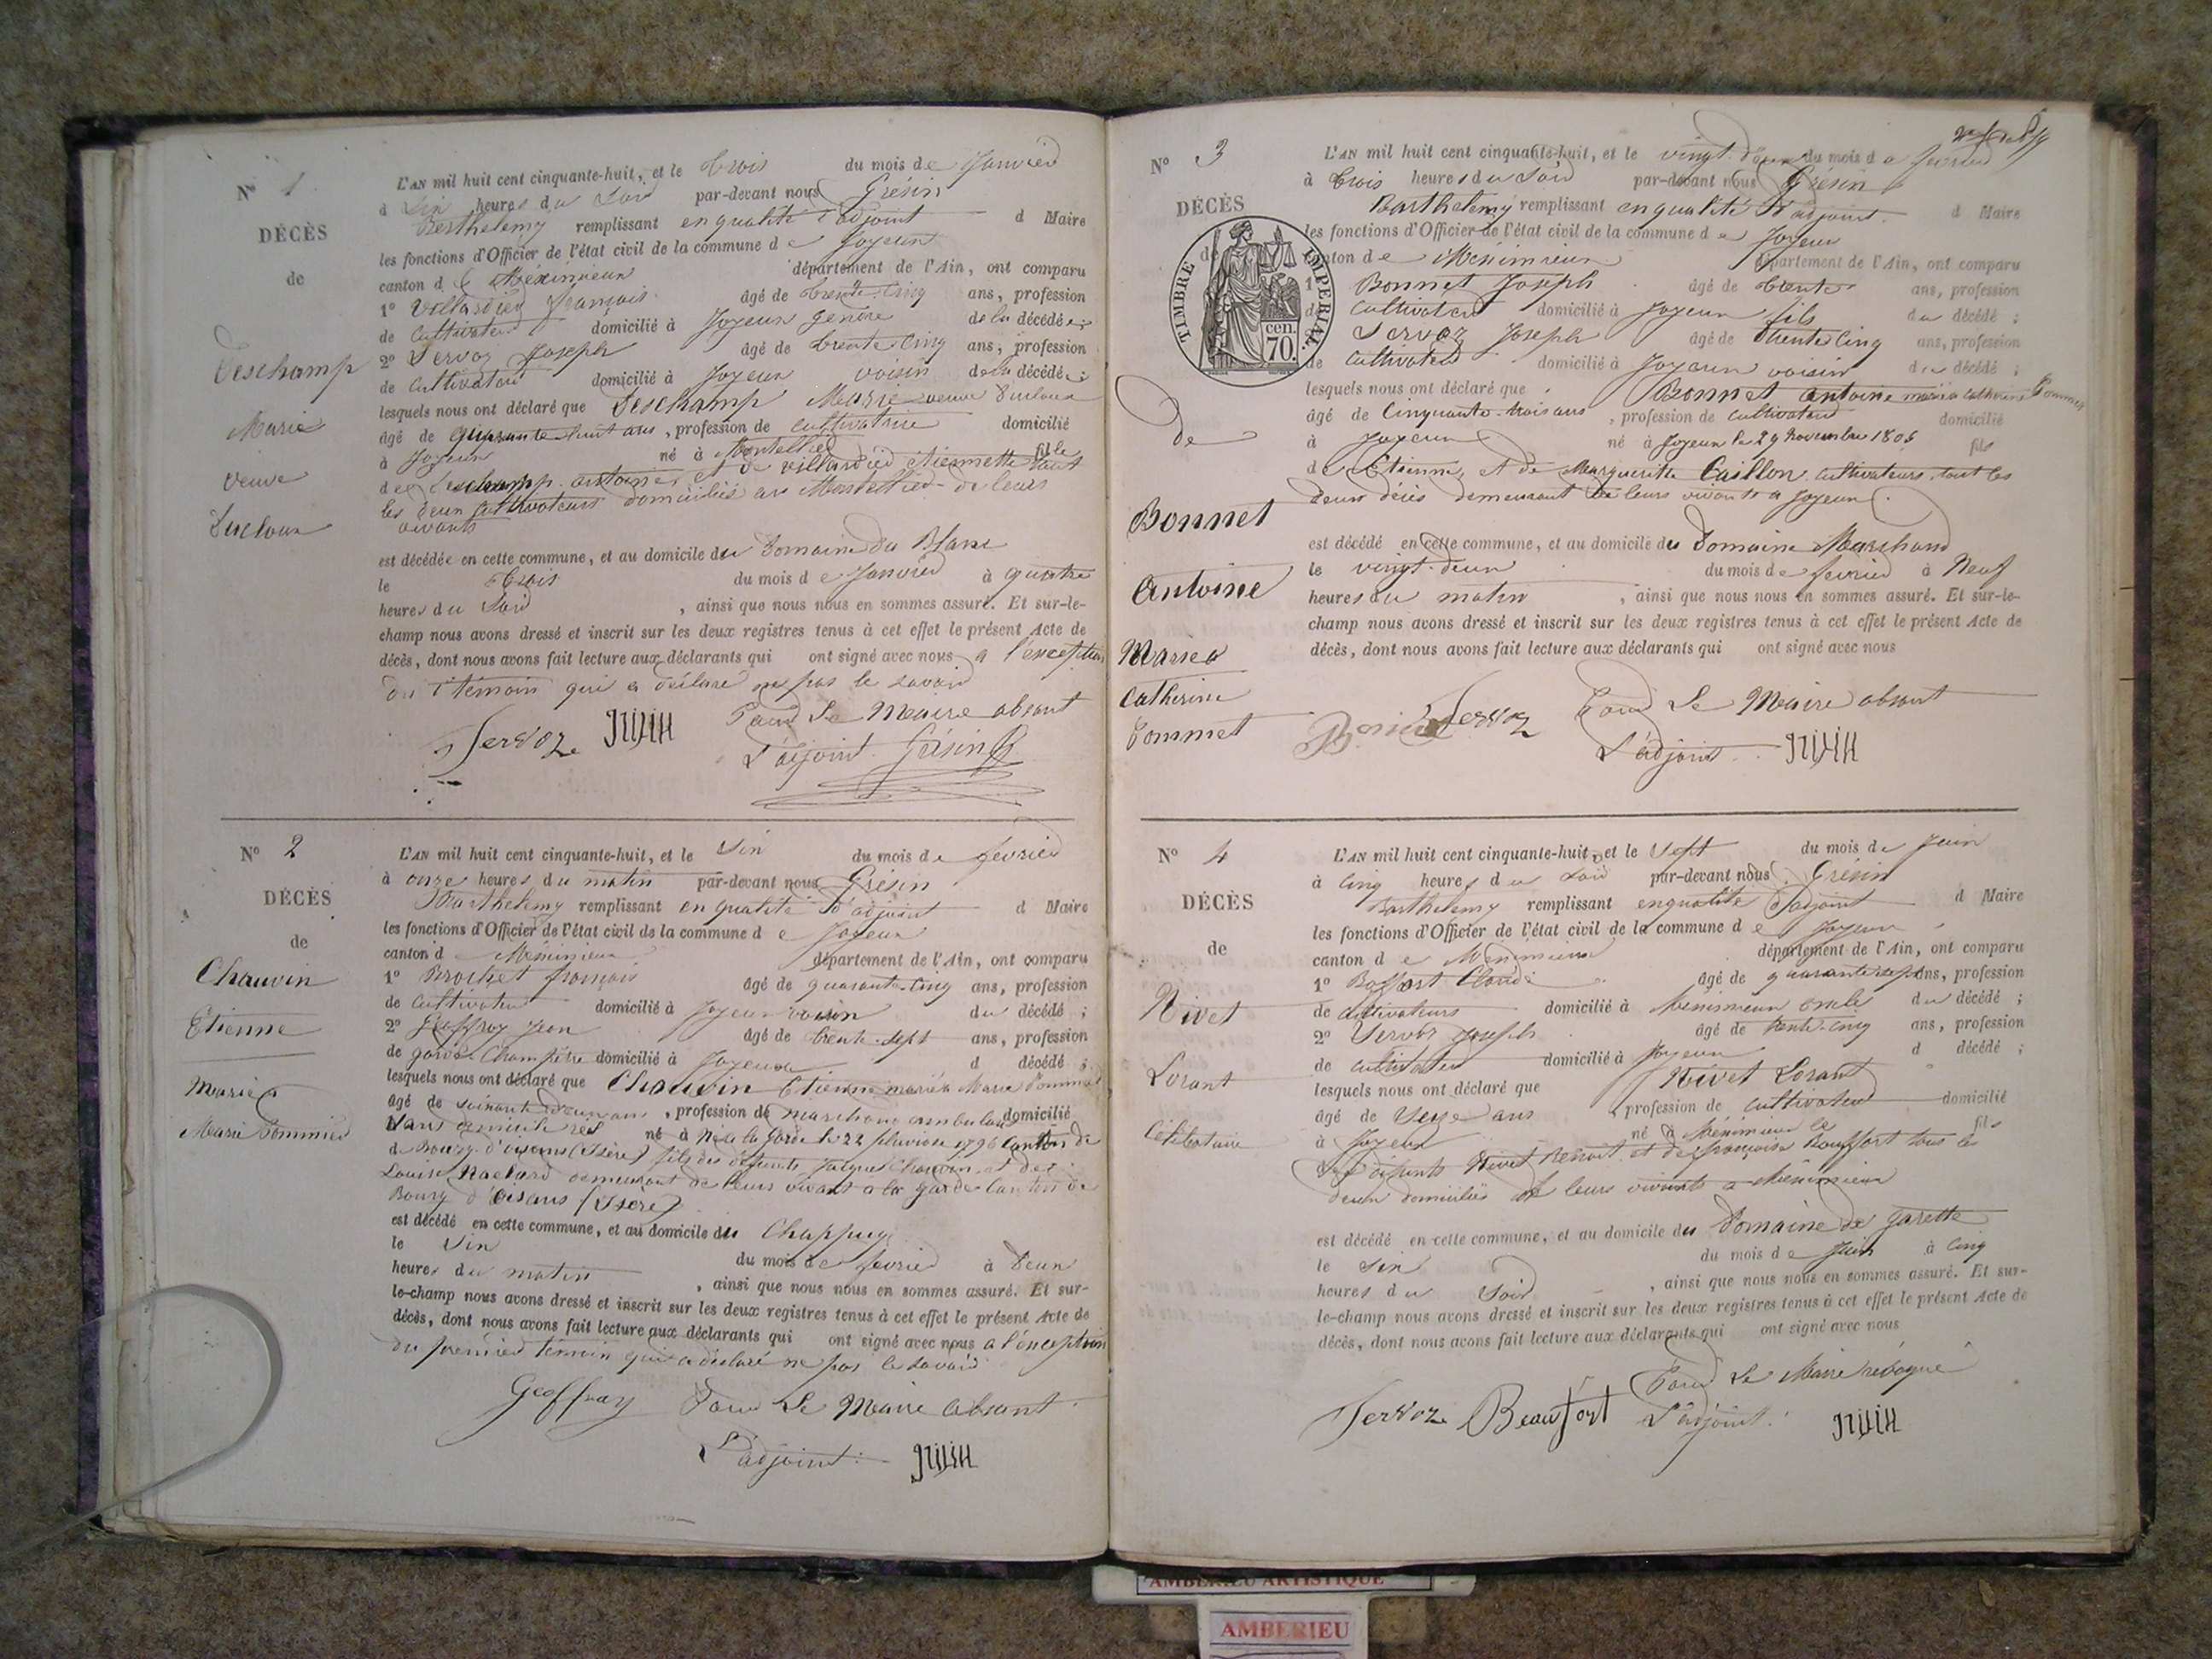 N° 1
DÉCÈS
de
Deschamp
Marie
veuve
Ducloux
L'AN mil huit cent cinquante-huit, et le trois du mois de Janvier
à Six heures du Soir par-devant nous Grésin
Barthelemy remplissant en qualité d'adjoint d Maire
les fonctions d'Officier de l'état civil de la commune de Joyeux
canton de Méximieux département de l'Ain, ont comparu
1° Villardier François âgé de trente cinq ans, profession
de Cultivateur domicilié à Joyeux gendre de la décédée
2° Servoz Joseph âgé de trente cinq ans, profession
de Cultivateur domicilié à Joyeux voisin de la décédée ;
lesquels nous ont déclaré que Deschamp Marie veuve Ducloux
âgé de quarante huit ans, profession de cultivatrice domicilié
à Joyeux né à Montellier fille
de Deschamp antoine et de villardier etiennette tout
les deux cultivateurs domiciliés au Montellier de leurs
vivants
est décédée en cette commune, et au domicile du Domaine du Blanc
le trois du mois de Janvier à quatre
heures du Soir, ainsi que nous nous en sommes assuré. Et sur-le-
champ nous avons dressé et inscrit sur les deux registres tenus à cet effet le présent Acte de
décès, dont nous avons fait lecture aux déclarants qui ont signé avec nous a l'exception
du témoin qui a déclaré ne pas le savoir
Pour Le Maire absant
Servoz L'adjoint Grésin
N° 2
DÉCÈS
de
Chauvin
Etienne
Marié a
Marie Pommier
L'AN mil huit cent cinquante-huit, et le Six du mois de fevrier
à onze heures du matin par-devant nous Grésin
Barthelemy remplissant en qualité d'adjoint d Maire
les fonctions d'Officier de l'état civil de la commune de Joyeux
canton d Méximieux département de l'Ain, ont comparu
1° Brochet françois âgé de quarante-cinq ans, profession
de Cultivateur domicilié à Joyeux voisin du décédé ;
2° Geoffroy Jean âgé de trente-sept ans, profession
de garde-Champêtre domicilié à Joyeux d décédé ;
lesquels nous ont déclaré que Chauvin Etienne marié a Marie Pommier
âgé de soixante deux ans, profession de marchand ambulant domicilié
Sans domicile réel né à la Garde le 22 pluviose 1796 Canton de
de Bourg d'oisans (Isère) fils des défunts Jacques Chauvin et de
Louise demeurant de leurs vivant a la garde Canton de
Bourg d'Oisans (Isère)
est décédé en cette commune, et au domicile du Chappuy
le Six du mois de fevrier à Deux
heures du matin, ainsi que nous nous en sommes assuré. Et sur-
le-champ nous avons dressé et inscrit sur les deux registres tenus à cet effet le présent Acte de
décès, dont nous avons fait lecture aux déclarants qui ont signé avec nous a l'exception
du premier témoin qui a déclaré ne pas le savoir
Geoffray Pour Le Maire absant
L'adjoint
N° 3
DÉCÈS
de
TIMBRE IMPERIAL
70 cen.
de
Bonnet
Antoine
Marié a
Catherine
Pommet
L'AN mil huit cent cinquante-huit, et le vingt-deux du mois de fevrier
à trois heures du Soir par-devant nous Grésin
Barthelemy remplissant en qualité d'adjoint d Maire
les fonctions d'Officier de l'état civil de la commune de Joyeux
canton de Méximieux département de l'Ain, ont comparu
1° Bonnet Joseph âgé de trente ans, profession
de Cultivateur domicilié à Joyeux fils du décédé ;
Servoz Joseph âgé de trente cinq ans, profession
de Cultivateur domicilié à Joyeux voisin du décédé ;
lesquels nous ont déclaré que Bonnet antoine marié a catherine Pommet
âgé de Cinquante trois ans, profession de Cultivateur domicilié
à Joyeux né à Joyeux le 29 Novembre 1805 fils
de Etienne et de Marguerithe Caillon cultivateurs tout les
deux décés demeurant de leurs vivants a Joyeux
est décédé en cette commune, et au domicile du Domaine Marchand
le vingt-deux du mois de fevrier à Neuf
heures du matin, ainsi que nous nous en sommes assuré. Et sur-le-
champ nous avons dressé et inscrit sur les deux registres tenus à cet effet le présent Acte de
décès, dont nous avons fait lecture aux déclarants qui ont signé avec nous
Servoz Pour Le Maire absant
L'adjoint
N° 4
DÉCÈS
de
Nivet
Lorant
Célibataire
L'AN mil huit cent cinquante-huit, et le Sept du mois de Juin
à Cinq heures du Soir par-devant nous Grésin
Barthelemy remplissant en qualité d'adjoint d Maire
les fonctions d'Officier de l'état civil de la commune de Joyeux
canton de Méximieux département de l'Ain, ont comparu
1° Claude âgé de quarante sept ans, profession
de Cultivateurs domicilié à Méximieux oncle du décédé ;
2° Servoz Joseph âgé de trente-cinq ans, profession
de cultivateur domicilié à Joyeux d décédé ;
lesquels nous ont déclaré que Nivet Lorant
âgé de Seize ans, profession de Cultivateur domicilié
à Joyeux né à Méximieux le fils
des défunts Nivet Benoit et de françoise Bouffort tous les
deux domiciliés de leurs vivants a Méximieux
est décédé en cette commune, et au domicile du Domaine de Garette
le Six du mois de Juin à Cinq
heures du Soir, ainsi que nous nous en sommes assuré. Et sur-
le-champ nous avons dressé et inscrit sur les deux registres tenus à cet effet le présent Acte de
décès, dont nous avons fait lecture aux déclarants qui ont signé avec nous
Pour Le Maire
Servoz Beaufort L'adjoint
AMBERIEU ARTISTIQUE
AMBERIEU